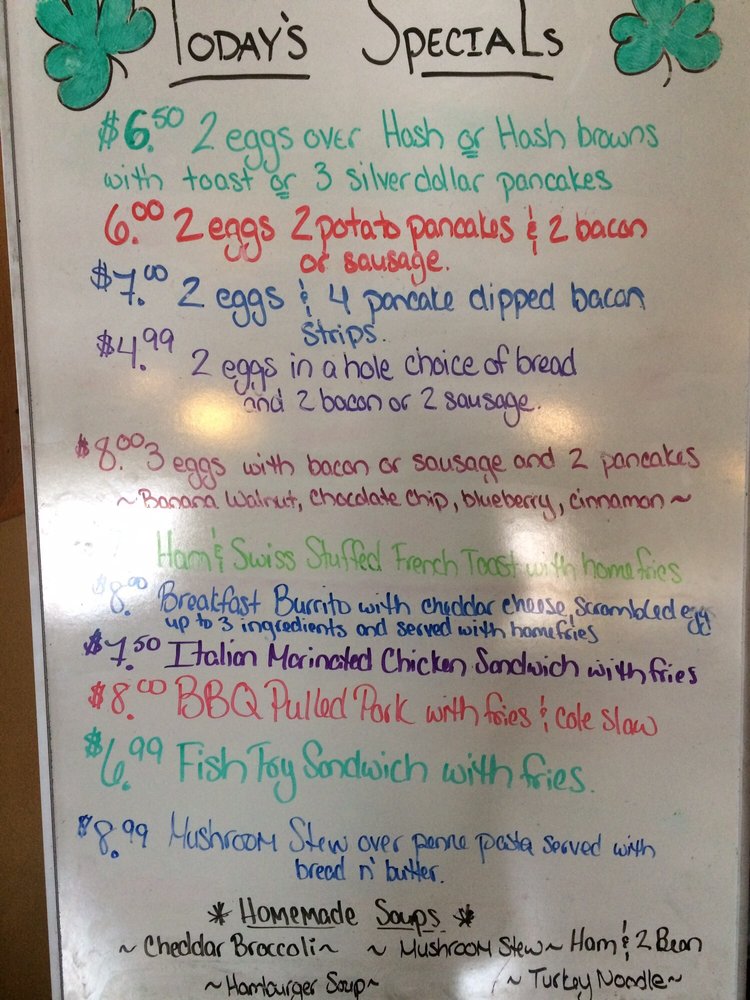 TODAY'S SPECIALS
$6.50 2 eggs over Hash or Hash browns
with toast or 3 silverdollar pancakes
6.00 2 eggs 2 potato pancakes & 2 bacon
or sausage.
$7.00 2 eggs & 4 pancake dipped bacon
strips.
$4.99 2 eggs in a hole choice of bread
and 2 bacon or 2 sausage.
$8.00 3 eggs with bacon or sausage and 2 pancakes
~Banana Walnut, chocolate chip, blueberry, cinnamon~
Ham & Swiss Stuffed French Toast with homefries
$8.00 Breakfast Burrito with cheddar cheese, scrambled egg
up to 3 ingredients and served with homefries
$7.50 Italian Marinated Chicken Sandwich with fries
$8.00 BBQ Pulled Pork with fries & cole slaw
$6.99 Fish Fry Sandwich with fries.
$8.99 Mushroom Stew over penne pasta served with
bread n' butter.
* Homemade Soups *
~Cheddar Broccoli~ ~Mushroom Stew~ Ham & 2 Bean
~Hamburger Soup~ ~Turkey Noodle~